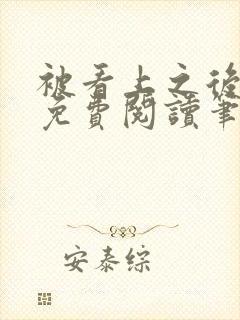 被看上之後
免費閱讀筆
安泰綜